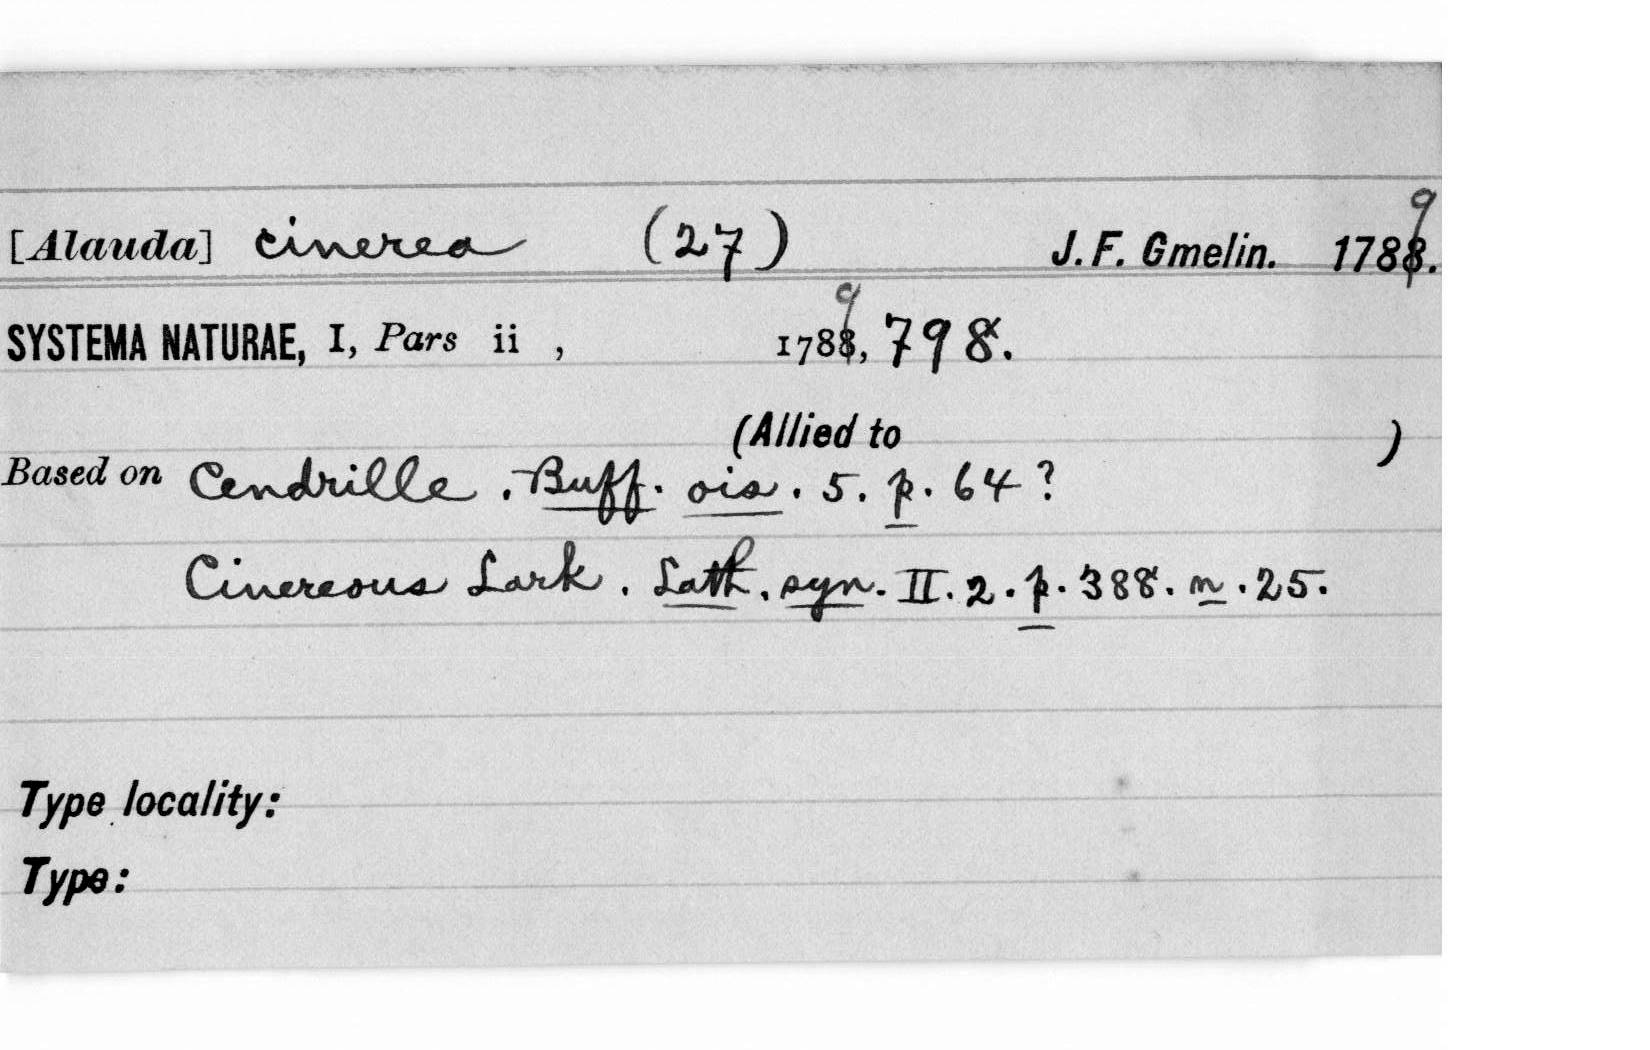 [Alauda] cinerea (27) J. F. Gmelin. 1789.
SYSTEMA NATURAE, I, Pars ii , 1789, 798.
(Allied to )
Based on Cendrille . Buff. ois. 5. p. 64?
Cinereous Lark. Lath. syn. II. 2. p. 388. n. 25.
Type locality:
Type: